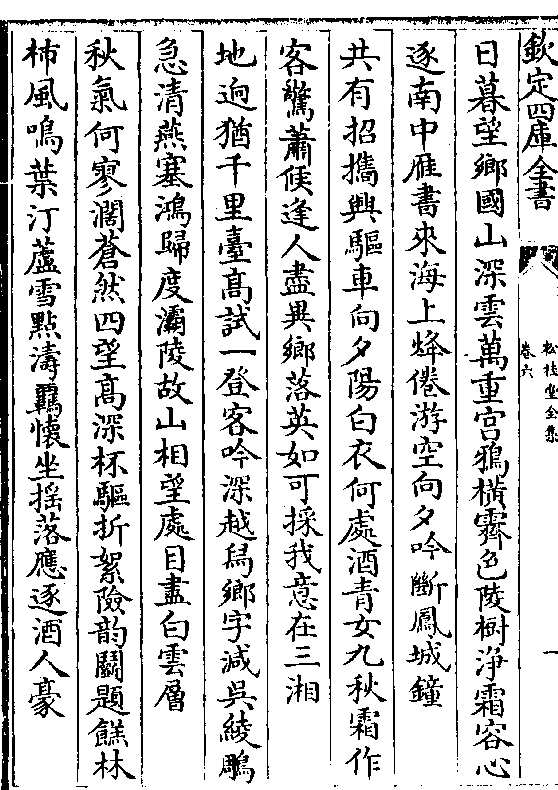 欽定四庫全書
松桂堂全集
卷六
一
日暮望鄉國山深雲萬重宫鴉橫霽色陵樹浄霜容心
逐南中雁書來海上烽倦游空向夕吟斷鳳城鐘
共有招攜興驅車向夕陽白衣何處酒青女九秋霜作
客驚蕭候逢人盡異鄉落英如可採我意在三湘
地逈猶千里臺髙試一登客吟深越舄鄉字減吳綾鵰
急清燕塞鴻歸度灞陵故山相望處目盡白雲層
秋氣何寥濶蒼然四望髙深杯驅折絮險韵鬭題餻林
柿風鳴葉汀蘆雪㸃濤羈懷坐揺落應逐酒人豪